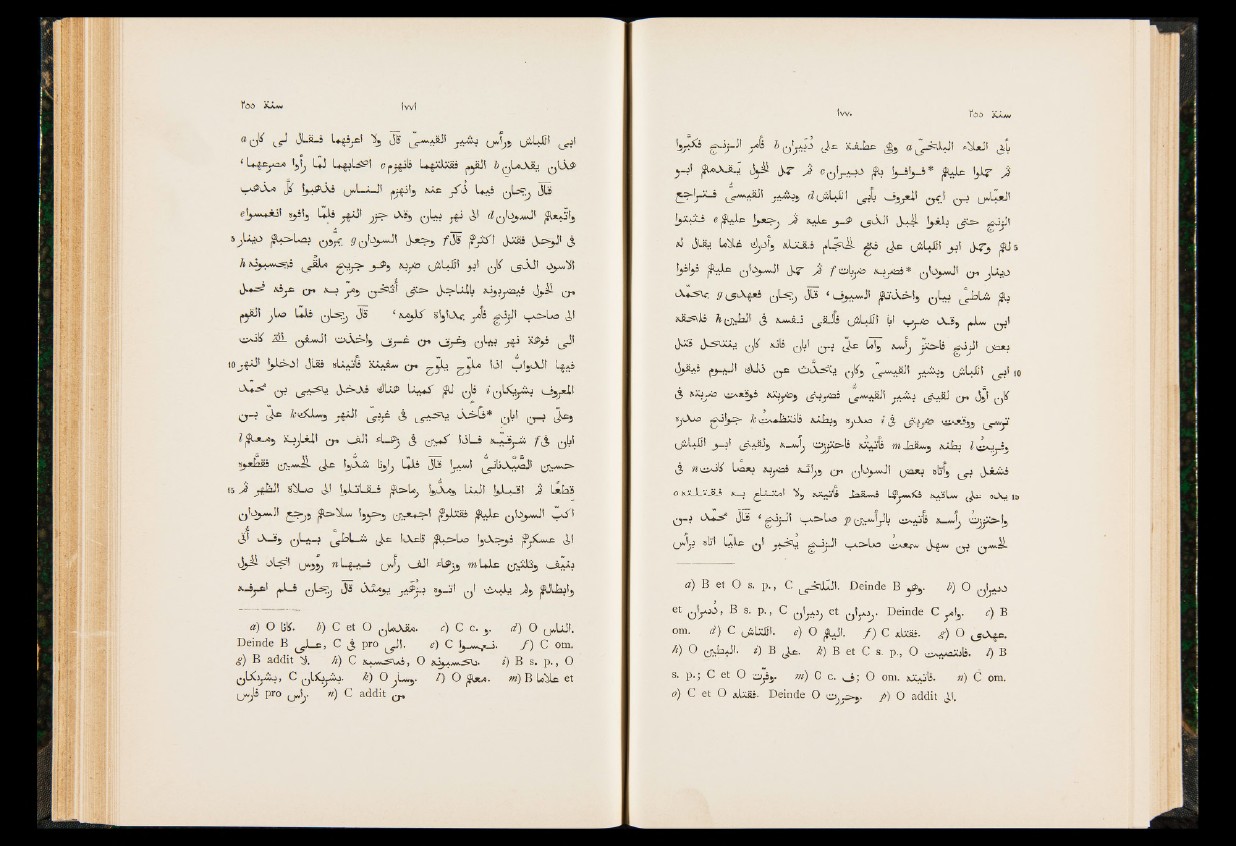 سنة ٢٥٥ ١٧٧٠
بأبى العلاء البلخىّ a وهو عطفة على دُبّيران b فأمر الزنج فكبّروا
ثم حملوا عليهم *فوافوا بهم دبيران c ثم حمل الخول يقدمهم ابو
العبّاس بن ايمن المعروف بأبى الليانش d وبشير القيسىّ فتراجع
الزنج حتى بلغوا الجبل الذى هو عليه ثم رجعوا عليهم e فثبتوا
5 لهم وحمل ابو الليانش على فتح الحجّام فقتله وأدرك غلاما يقال له
دينار من السودان *فضربه ضربات f ثم حمل السودان عليهم فوافوا
بهم شاطئ بيان وأخذتهم السيوف، قال ريحان فعهدى g بمحمّد
ابن سلم وقد ضرب ابا الليانش فألقى نفسه فى الطين h فلحقه
بعض الزنج فاحتزّ رأسه وأمّا علىّ بن ابان فانه كان ينتحل قتل
10 ابى الليانش وبشير القيسىّ وكان يتحدّث عن ذلك اليوم فيقول
كان أوّل من لقينى بشير القيسىّ فضربنى وضربته فوقعت ضربته فى
ترسى ووقعت ضربتى فى i صدره وبطنه فانتظمتُ k جوانح صدره
وفريتُ l بطنه وسقط m فأتيته فاحتززت رأسه ولقينى ابو الليانش
فشغل بى وأتاه بعض السودان من ورائه فضربه بعصًا كانت n فى
15 يده على ساقيه فكسرهما فسقط فأتيته ولا امتناع به فقتلته o
واحتززتُ رأسه فأتيت بالرأسين p صاحب الزنج، قال محمّد بن
الحسن بن سهل سمعتُ صاحب الزنج يُخبر ان عليّا اتاه برأس
a) B et O s. p., C الملحى. Deinde B وهو. b) O دبيران
et, B s. p., C et. Deinde C وامر. c) B
om. d) C اللتباش. e) O اليهم. f) C فقتله. g) O عهدى.
h) O البطين. i) B على. k) B et C s. p., O. l) B
s. p.; C et O وفرت. m) C c. ف; O om. فأتيته. n) C om.
o) C et O فقتله. Deinde O وحززت. p) O addit الى.
سنة ٢٥٥ ١٧٧١
ابى الليانش ورأس بشير القيسىّ قال ولا اعرفهما فقال لى كان a
هذان يقدمان b القوم فقتلتهما فانهزم c اصحابهما لمّا رأوا مصرعهما،
قال ريحان فيما ذُكر عنه وانهزم النـاس فذهبوا كلّ مذهب
واتّبعهم السودان d الى نهر بيان وقد جزر النهر فلمّا وافوه انغمسوا e
5 فى الوحل فقتل اكثرهم قال f وجعل السودان g يمرّون بصاحبهم دينار
الاسود الذى كان ابو الليانش ضربه وهو جريح ملقى فيحسبونه h
من الخول فيضربونه بالمناجل حتى أُثخن ومرّ به من عرفه فحمل
الى صاحب الزنج فأمر بمداواة كلومه، قال ريحان فلمّا صار القوم
الى فوهة نهر بيان وغرق من غرق وأخذت السفن التى كانت
10 فيها الدوابّ اذا ملوّح يلوّح من سفينة فأتيناه فقال ادخلوا النهر
المعروف بشريكان i فان لهم كمينا هناك فدخل يحيى بن محمّد
وعلىّ بن ابان *فأخذ يحيى فى غربىّ النهر وسلك k علىّ بن
ابان فى f شرقيّه فاذا كمين فى زهاء الف من المغاربة ومعهم l
حسين الصَّيْدَنانى اسيرا قال فلمّا رأونا شدّوا على الحسين فقطّعوه
15 قطعًا ثم اقبلوا الينا ومدّوا رماحهم فقاتلوا الى صلاة الظهر ثم
اكبّ السودان عليهم فقتلوهم اجمعين وحووا سلاحهم ورجع السودان
الى عسكرهم فوجدوا صاحبهم قاعدا على شاطئ بيان وقد أُتى
بنيّف وثلثين علما m وزهاء الف رأس فيها n رؤوس انجاد الخول
وابطالهم ولم يلبث ان اتوه بزُهير يومئذ قال ريحان فلم اعرفه
a) O كانا. b) C et O مقدمان. c) C c. و. d) O الناس.
Deinde B على, C فى pro الى. e) C. f) C om.
g) B addit لا. h) C, O. i) B s. p., O
, C. k) O وسار. l) O معهم. m) B علاما et
فارس pro راس. n) C addit من